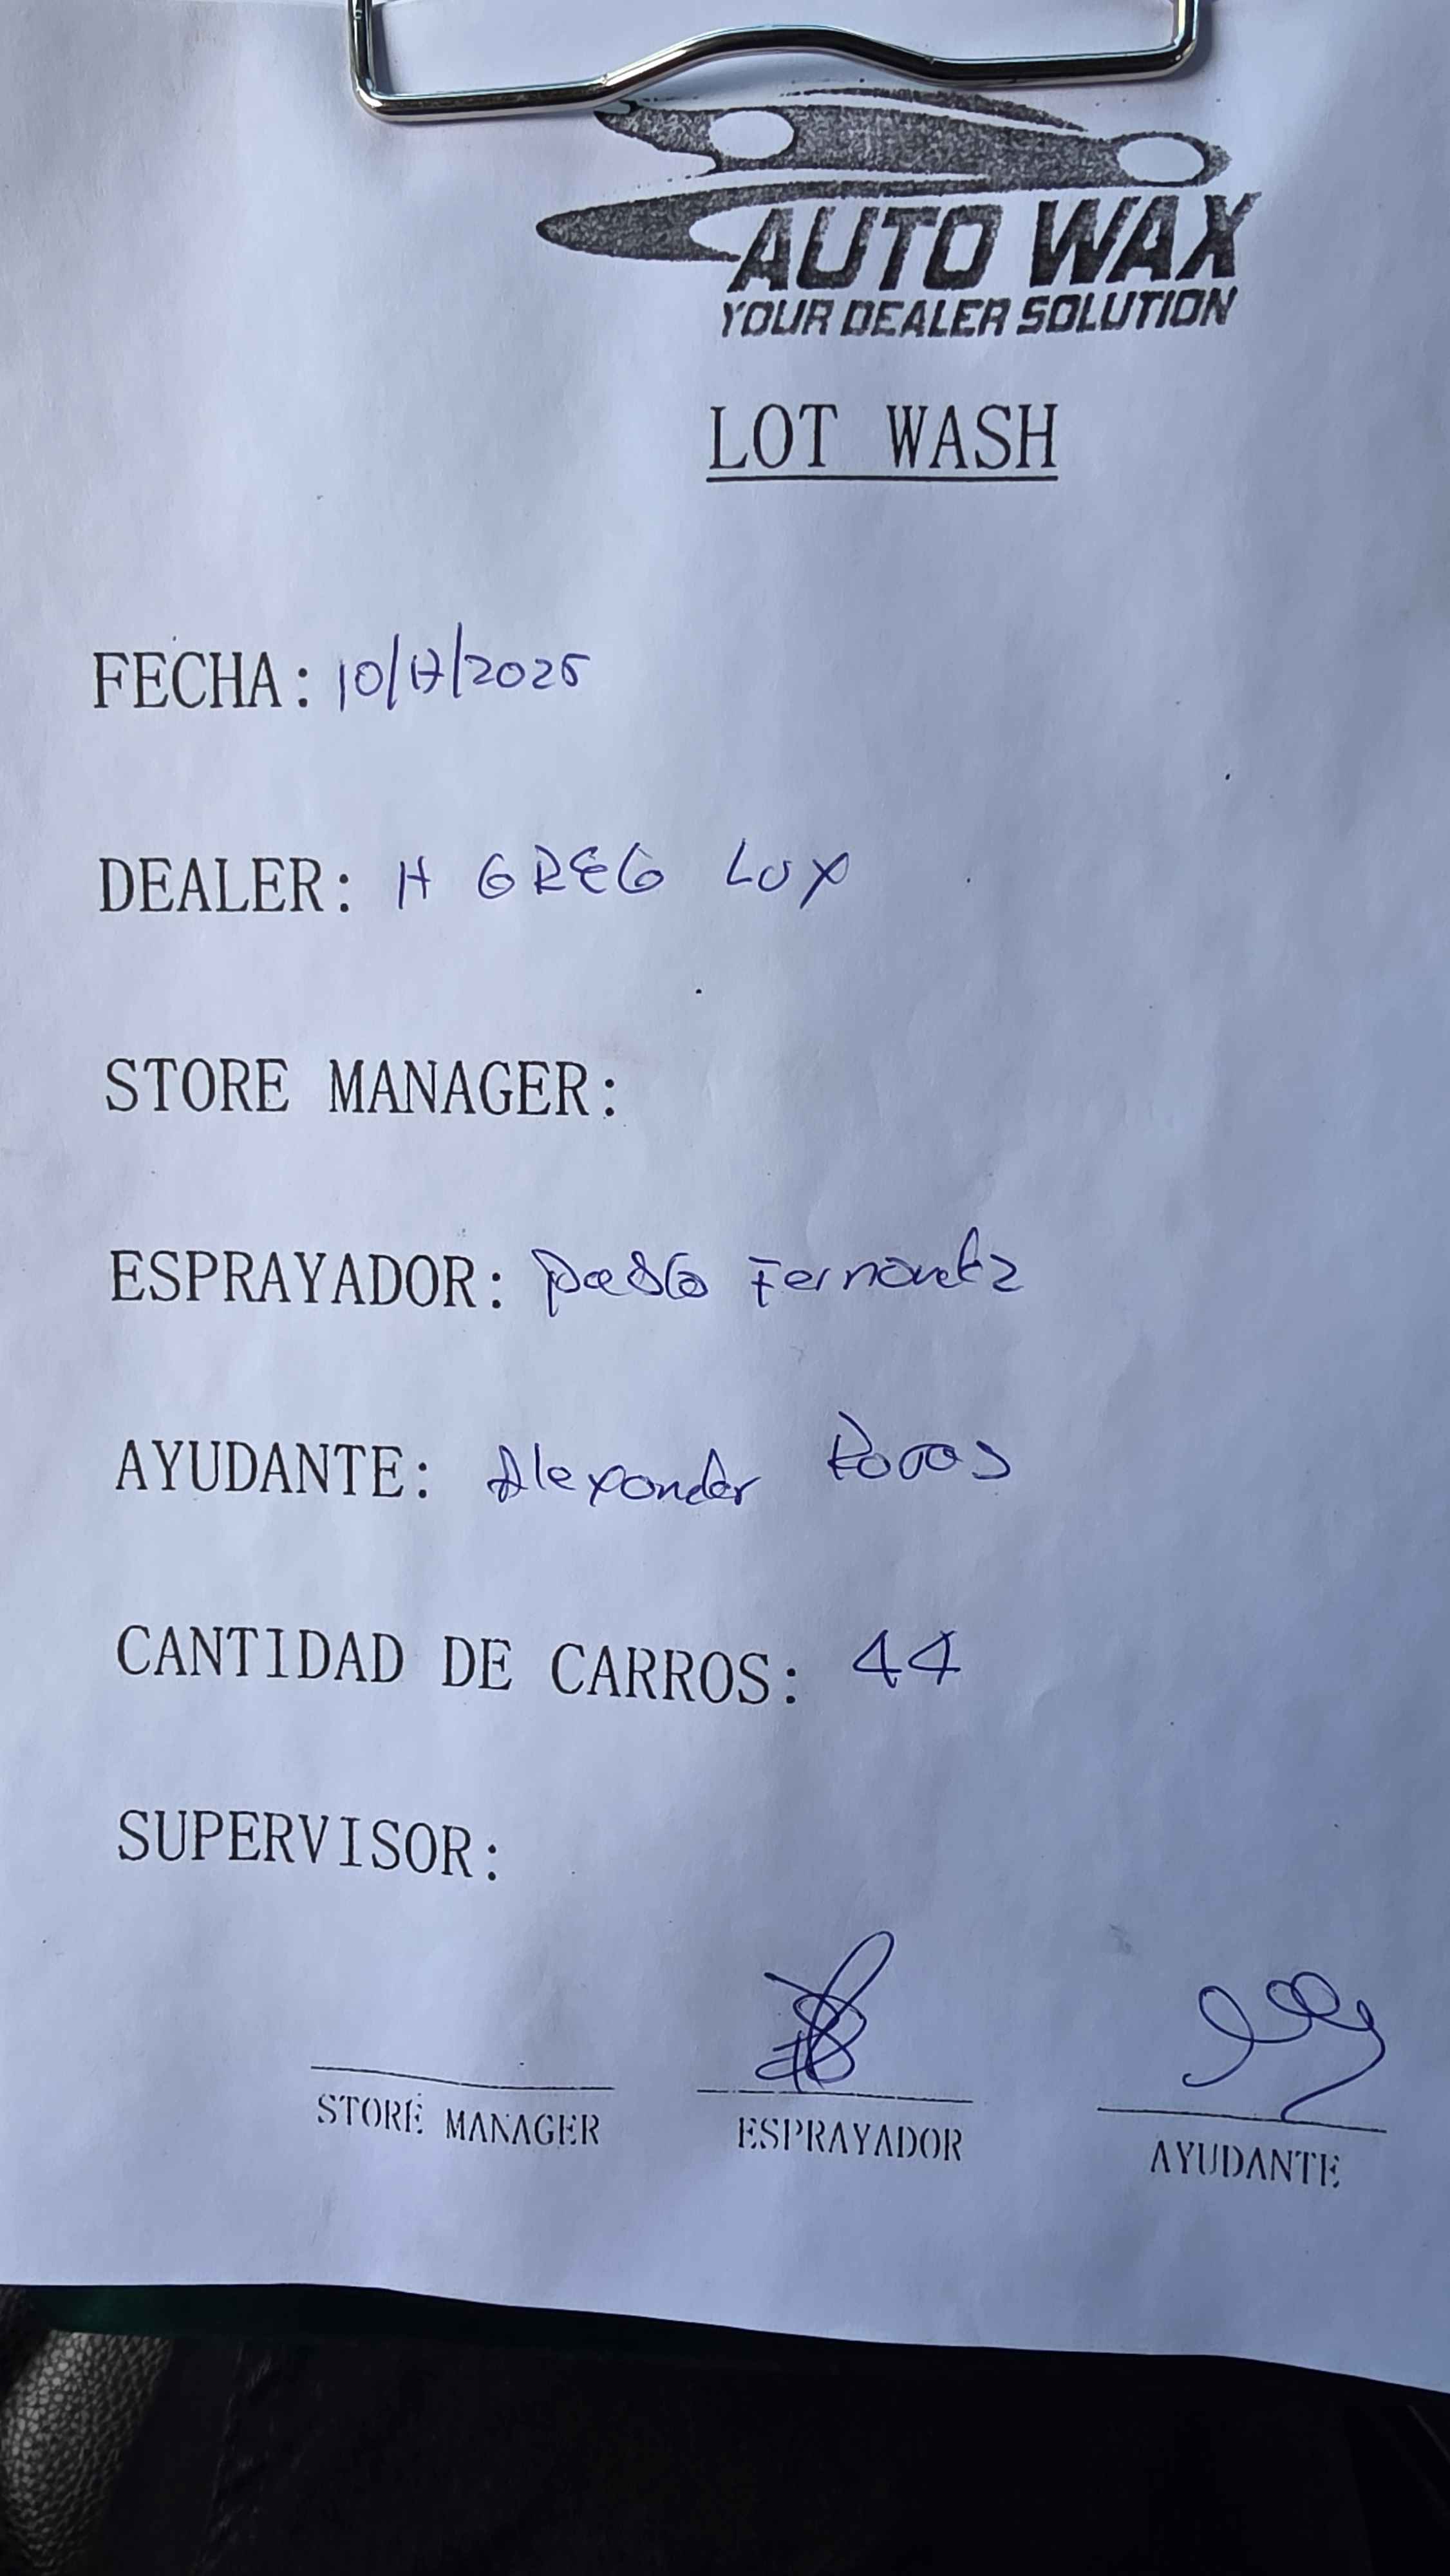 AUTO WAX
YOUR DEALER SOLUTION
LOT WASH
FECHA: 10/17/2025
DEALER: H GREG LUX
STORE MANAGER:
ESPRAYADOR: Pablo Fernandez
AYUDANTE: Alexander
CANTIDAD DE CARROS: 44
SUPERVISOR:
STORE MANAGER ESPRAYADOR AYUDANTE